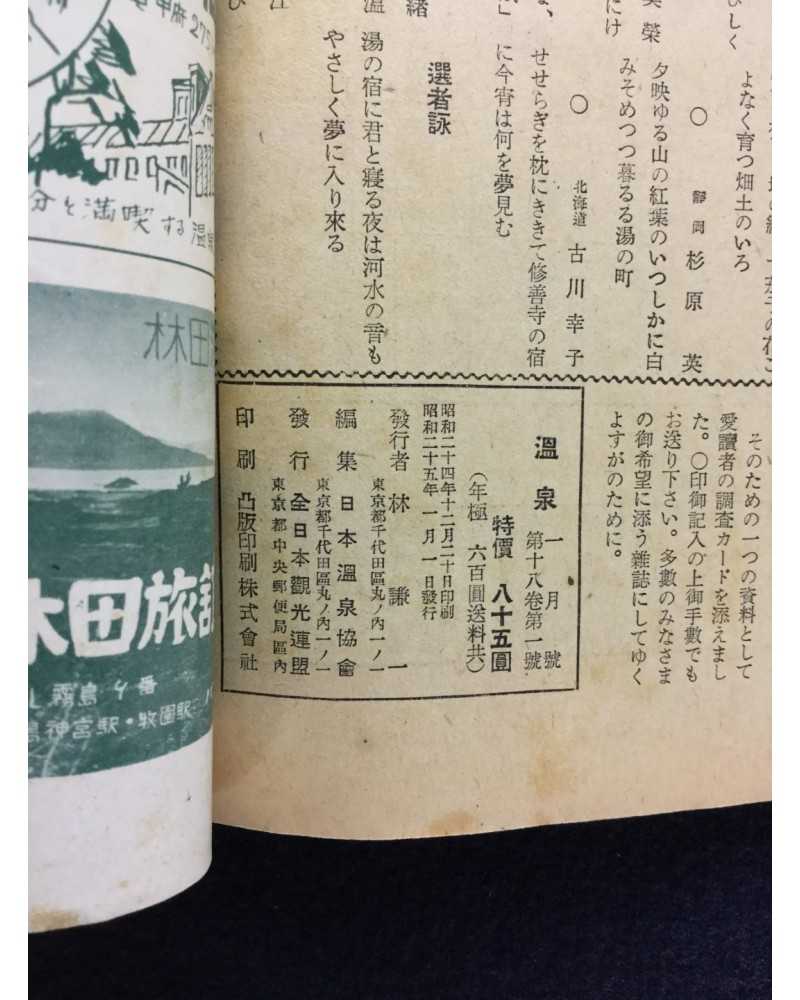 びしく
よなく育つ畑土のいろ
○
靜岡 杉原英
夕映ゆる山の紅葉のいつしかに白
みそめつつ暮るる湯の町
榮
にけ
○
北海道 古川幸子
せせらぎを枕にききて修善寺の宿
に今宵は何を夢見む
選者詠
緒
湯の宿に君と寢る夜は河水の音も
やさしく夢に入り來る
そのための一つの資料として
愛讀者の調査カードを添えまし
た。○印御記入の上御手數でも
お送り下さい。多數のみなさま
の御希望に添う雜誌にしてゆく
よすがのために。
溫泉 一月號
第十八卷第一號
特價 八十五圓
(年極 六百圓送料共)
昭和二十四年十二月二十日印刷
昭和二十五年一月一日發行
發行者 林謙一
東京都千代田區丸ノ内一ノ一
編集 日本溫泉協會
東京都千代田區丸ノ内一ノ一
發行 全日本觀光連盟
東京都中央郵便局區內
印刷 凸版印刷株式會社
甲府 275
分を滿喫する溫
林田
林田旅館
霧島4番
島神宮駅・牧園駅